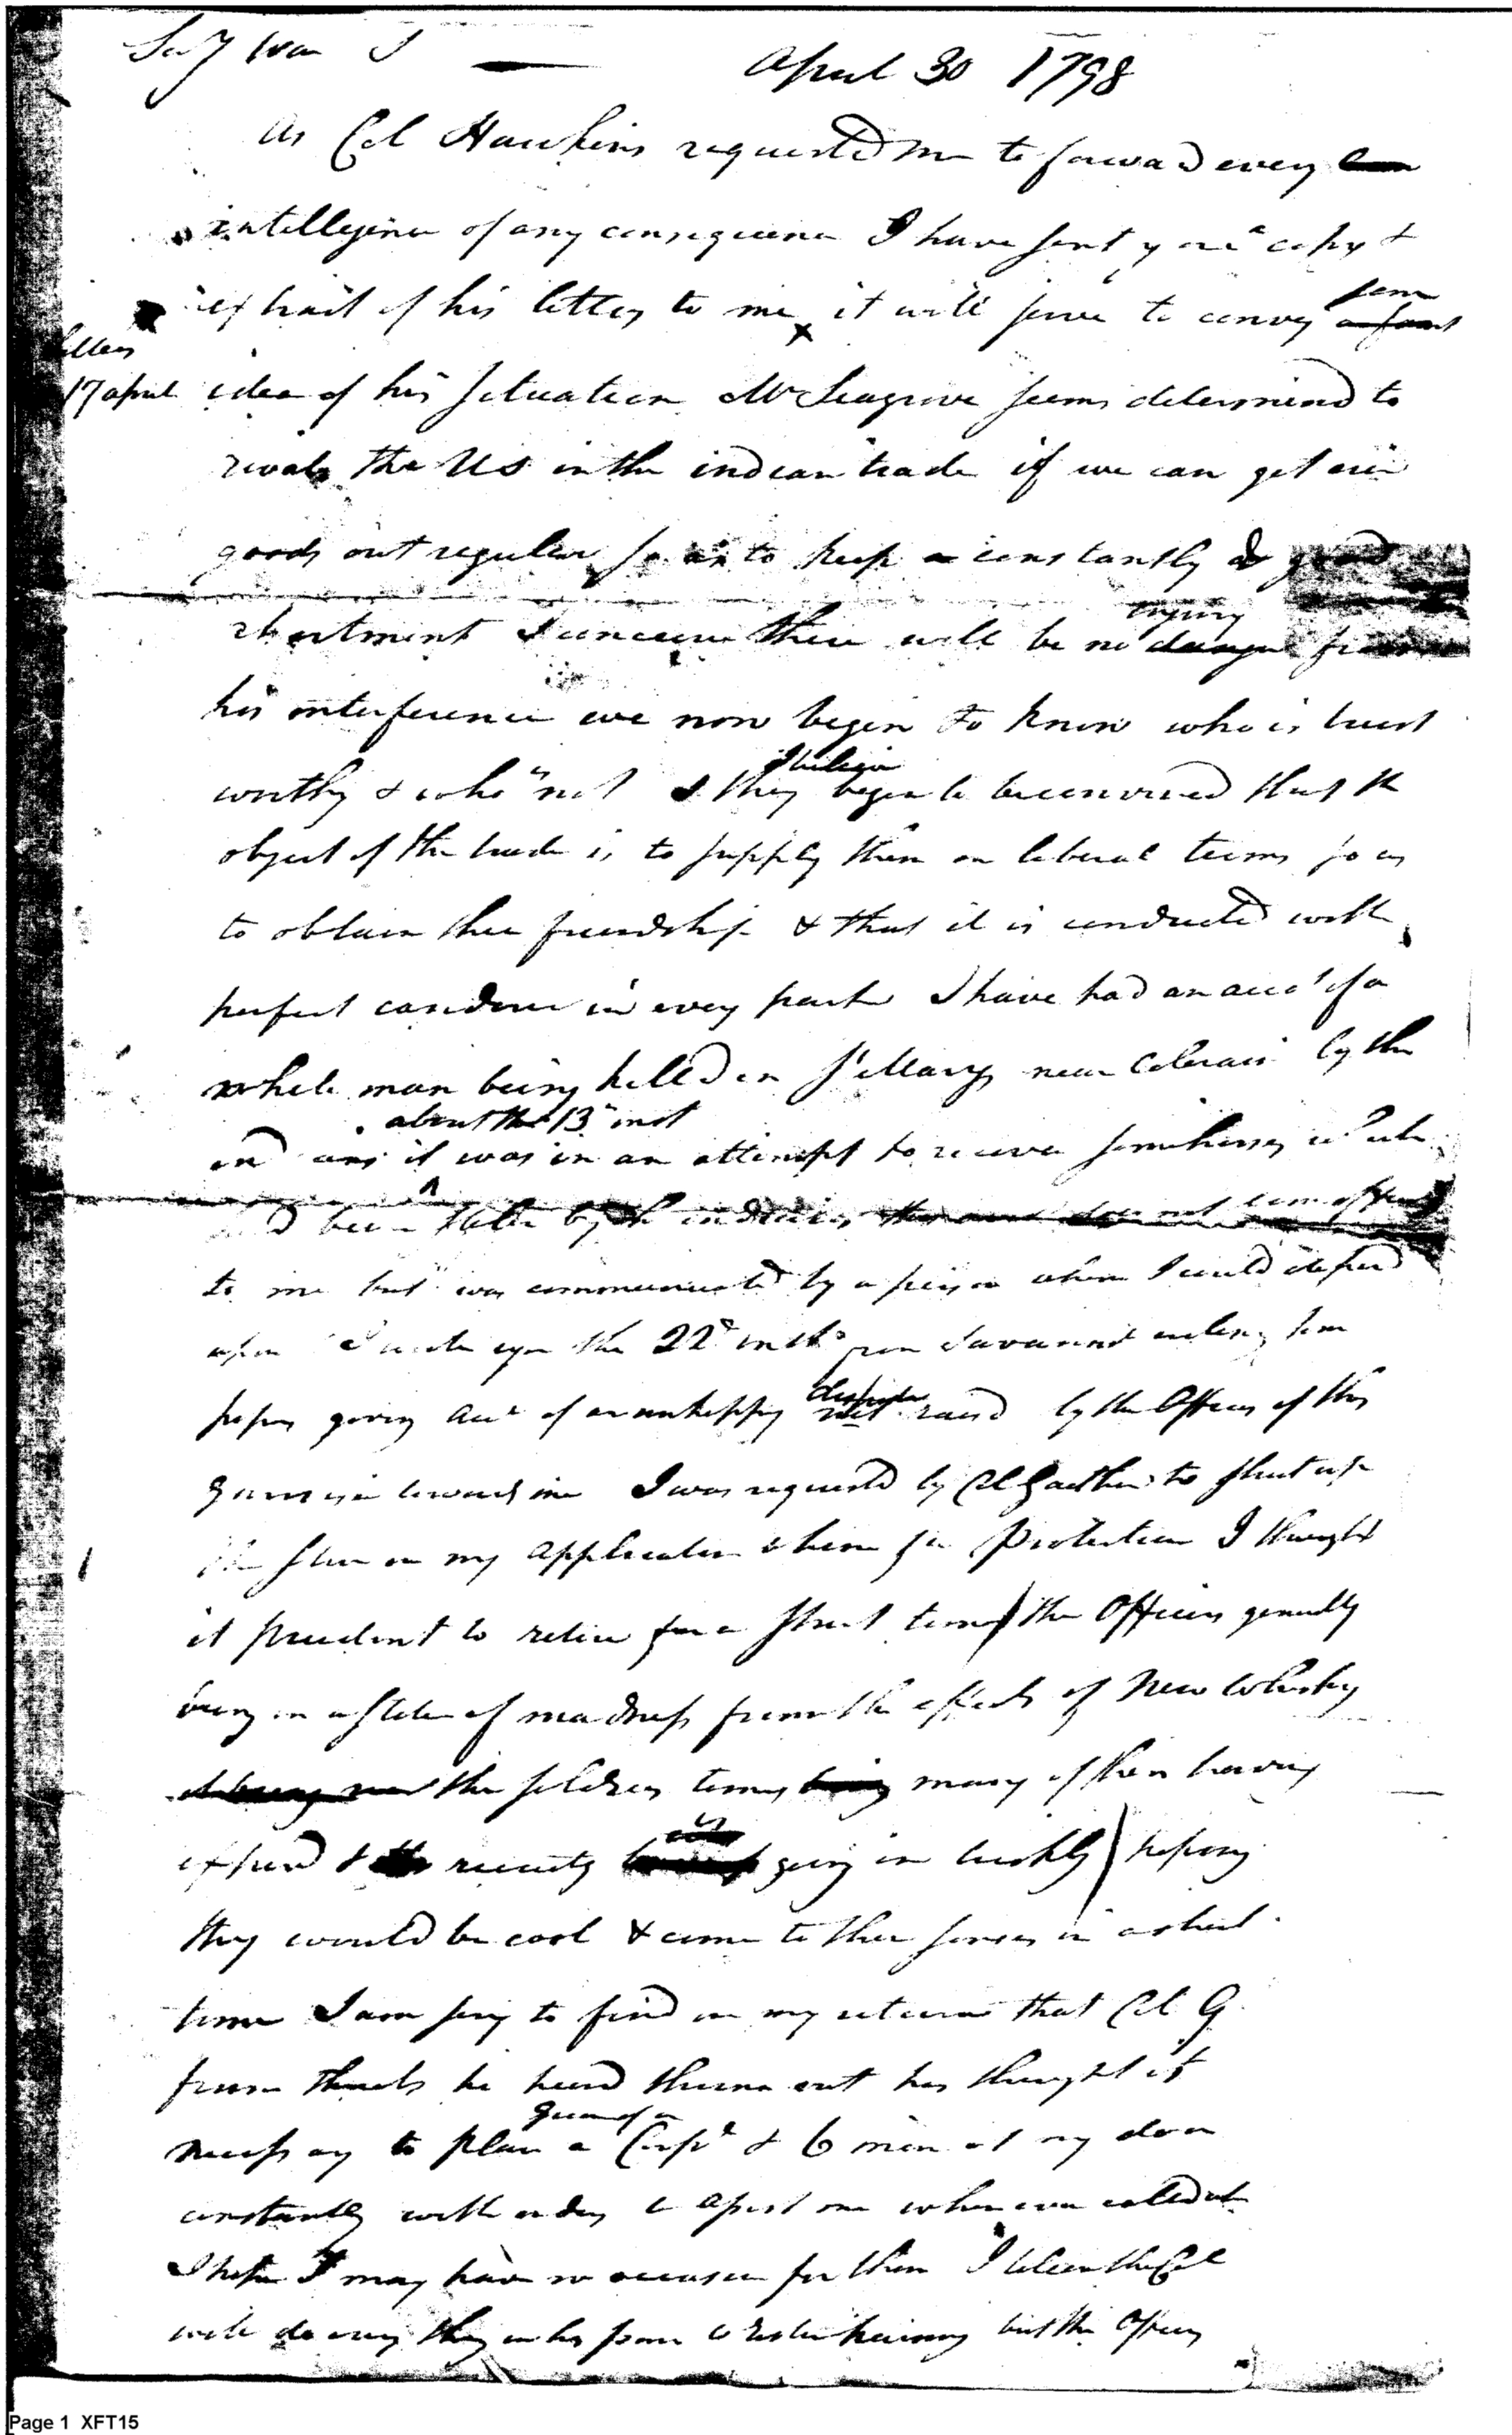 Secy War
April 30 1798
As Col Hawkins requested me to forward every
intellegence of any consequence I have sent you a copy &
extract of his letters to me it will serve to convey some
letters
17 april idea of his situation Mr Seagrove seems determined to
rival the US in the indian trade if we can get our
goods out regular so as to keep constantly a good
asortment I conceive there will be no injury from
his interference we now begin to know who is trust
worthy & who not & they I believe begin to be convinced that the
object of the trade is to supply them on liberal terms so as
to obtain thier friendship & that it is conducted with
perfect candour in every part I have had an acct of a
white man being killed on St Marys near Colerain by the
about the 13th inst
indians it was in an attempt to recover some horses which
had been stolen by the indians the acct does not come official
to me but was communicated by a person whom I could depend
upon I wrote you the 22d inst from Savannah enclosing some
papers giving acct of an unhappy dispute raised by the Officers of this
garrison towards me I was requested by Col Gaither to shut up
the store on my application to him for Protection I thought
it prudent to retire for a short time (the Officers generally
being in a state of madness from the effects of New Whiskey
the soldiers times many of them having
expired & recruits going in briskly) hoping
they would be cool & come to thier senses in a short
time I am sory to find on my return that Col G
from threats he heard thrown out has thought it
necessary to place a guard of a Corpl & 6 men at my door
constantly with orders to assist me when ever called upon
I hope I may have no occasion for them I believe the Col
will do every thing in his power to restore harmony but the Officers
Page 1 XFT15